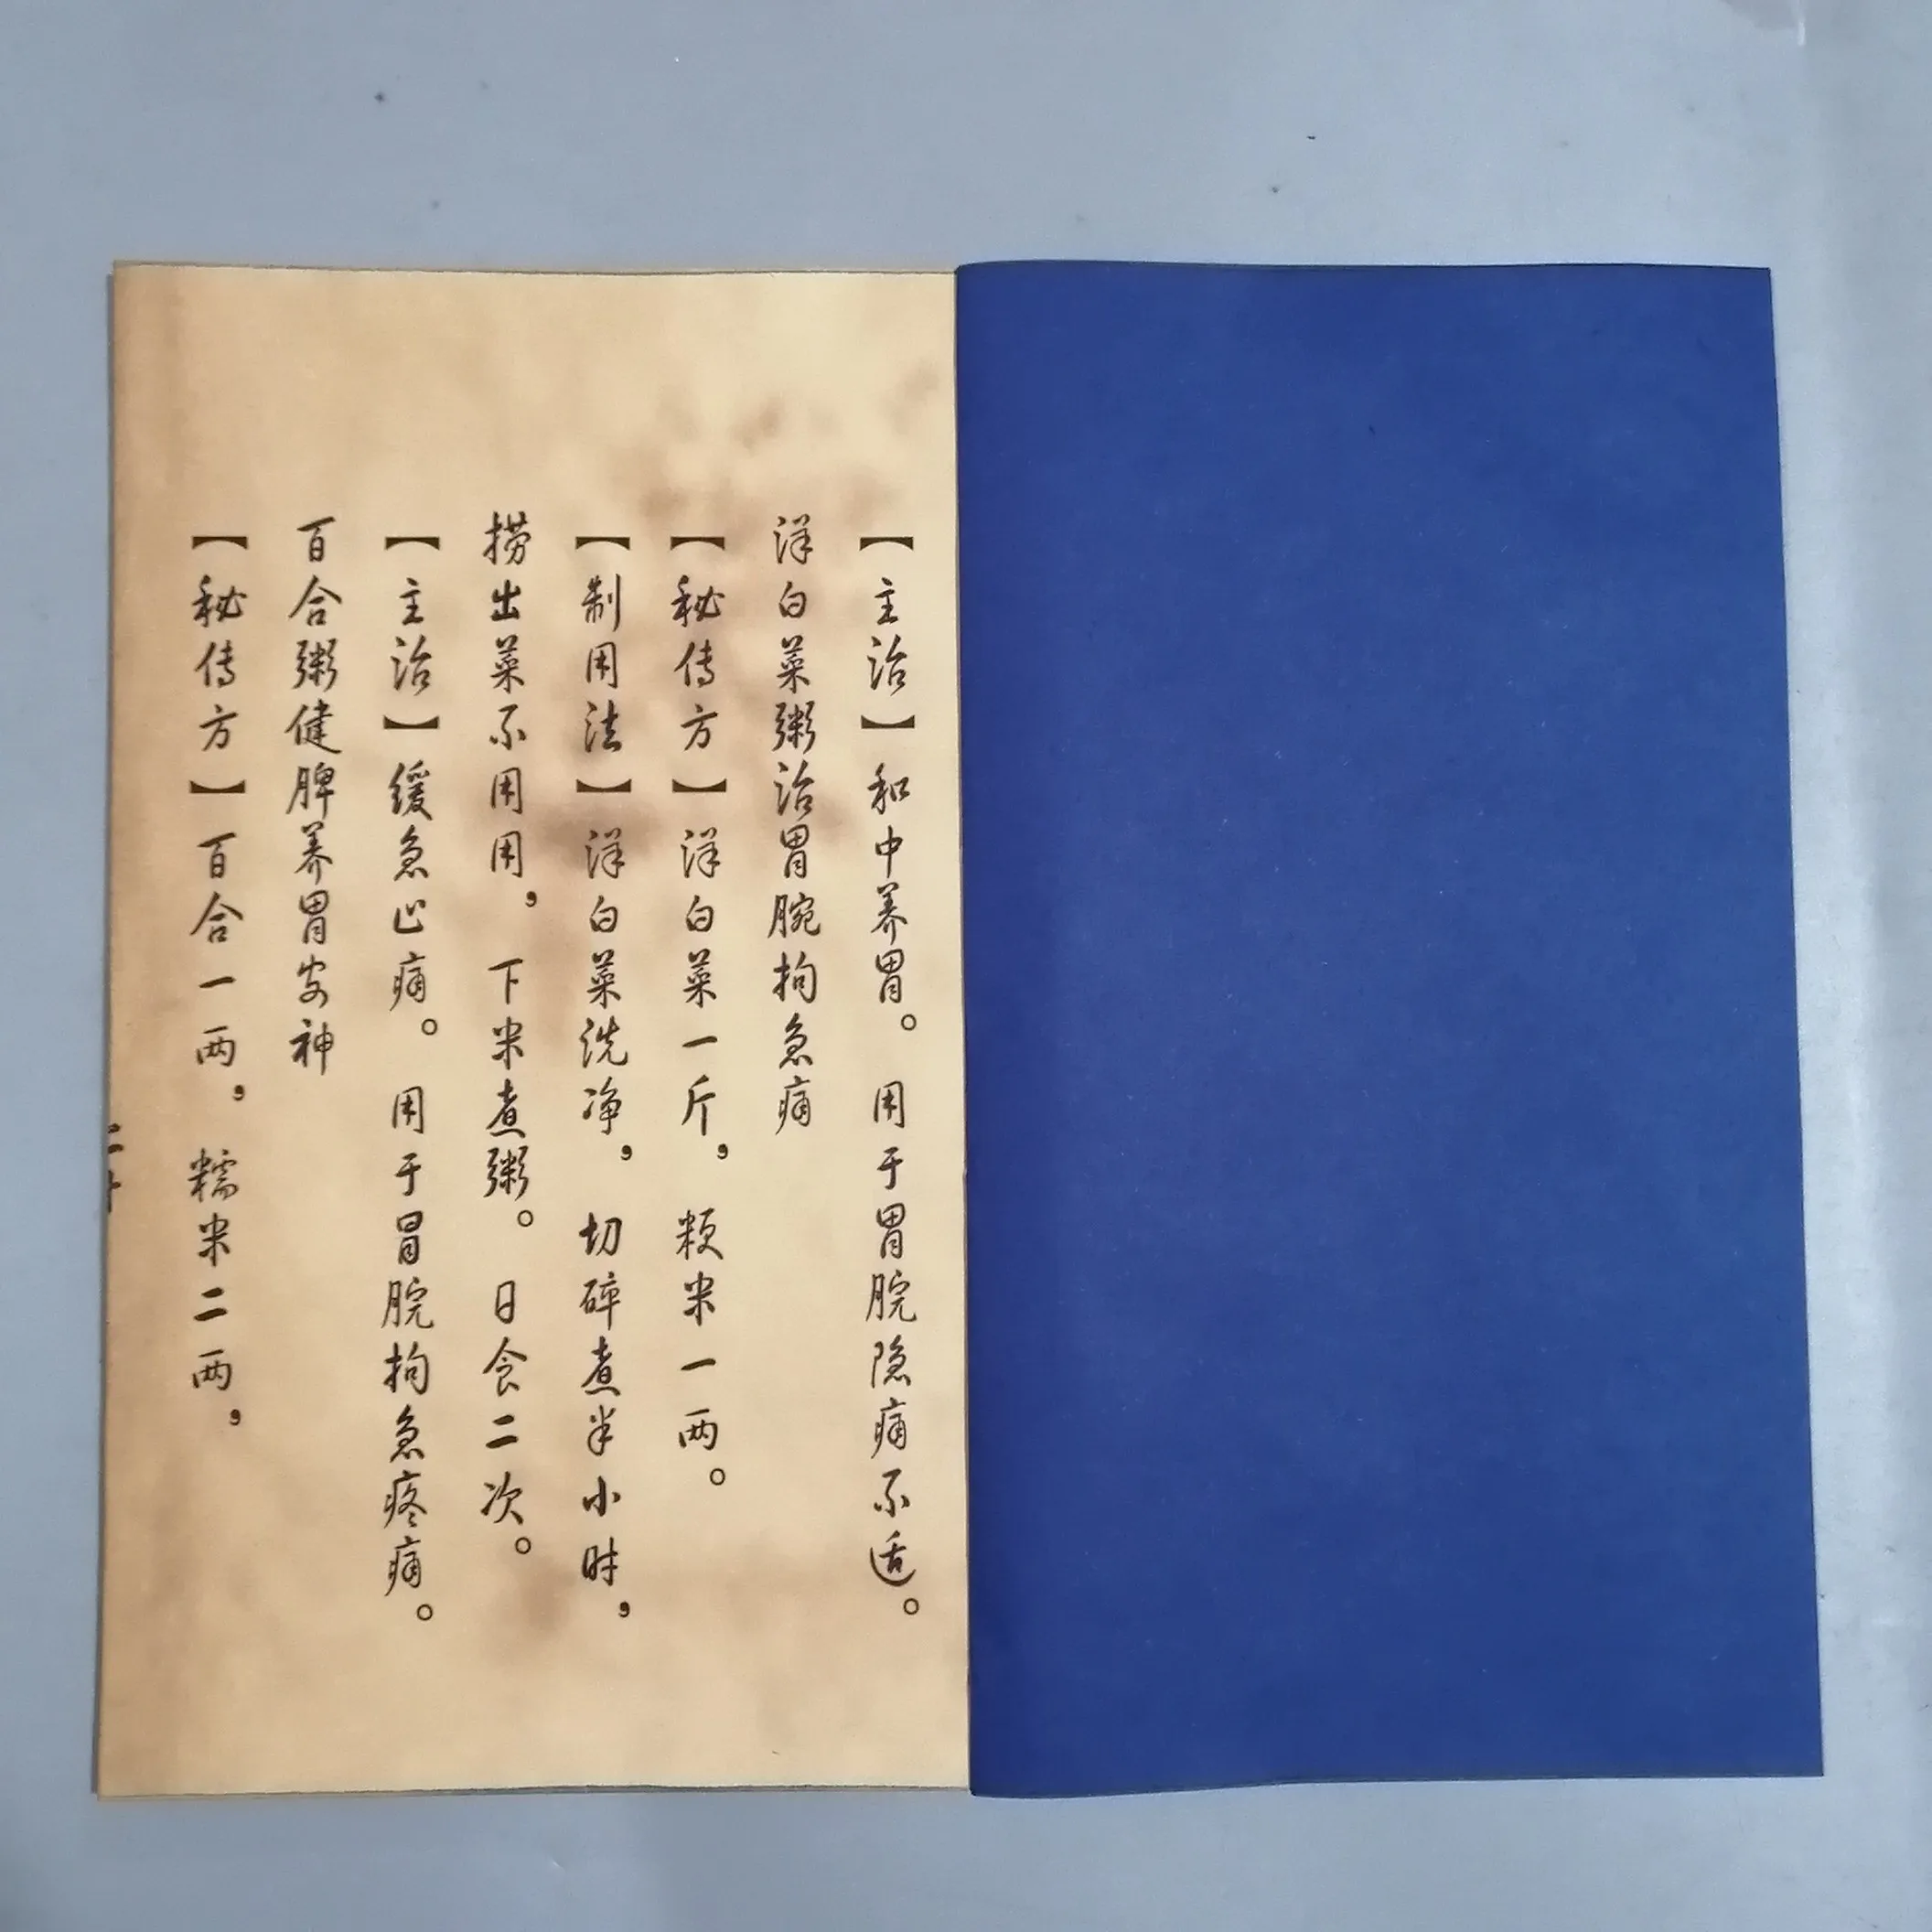 【主治】和中养胃。用于胃脘隐痛不适。
洋白菜粥治胃腕拘急痛
【秘传方】洋白菜一斤，粳米一两。
【制用法】洋白菜洗净，切碎煮半小时，
捞出菜不用用，下米煮粥。日食二次。
【主治】缓急止痛。用于冒脘拘急疼痛。
百合粥健脾养胃安神
【秘传方】百合一两，糯米二两，